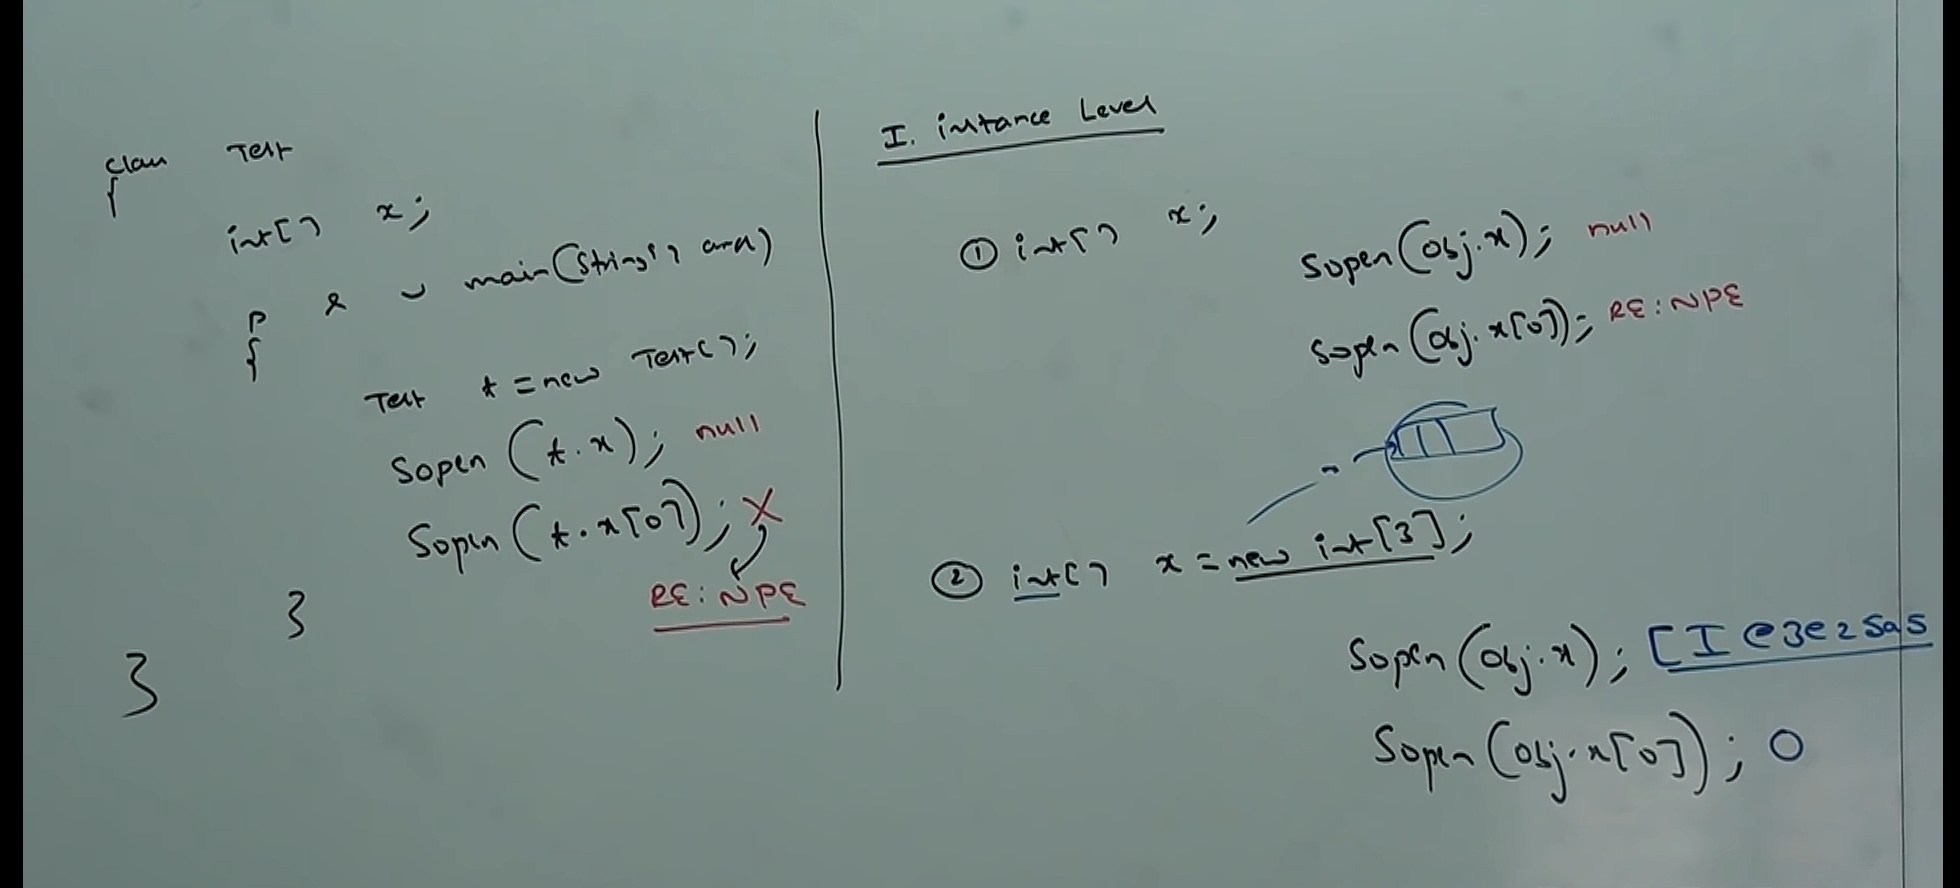 class Test
{
int[] x;
p s v main(String[] args)
{
Test t = new Test();
Sopln(t.x); null
Sopln(t.x[0]); X
RE: NPE
}
}
I. instance Level
① int[] x;
Sopln(obj.x); null
Sopln(obj.x[0]); RE: NPE
② int[] x = new int[3];
Sopln(obj.x); [I@3e25a5
Sopln(obj.x[0]); 0